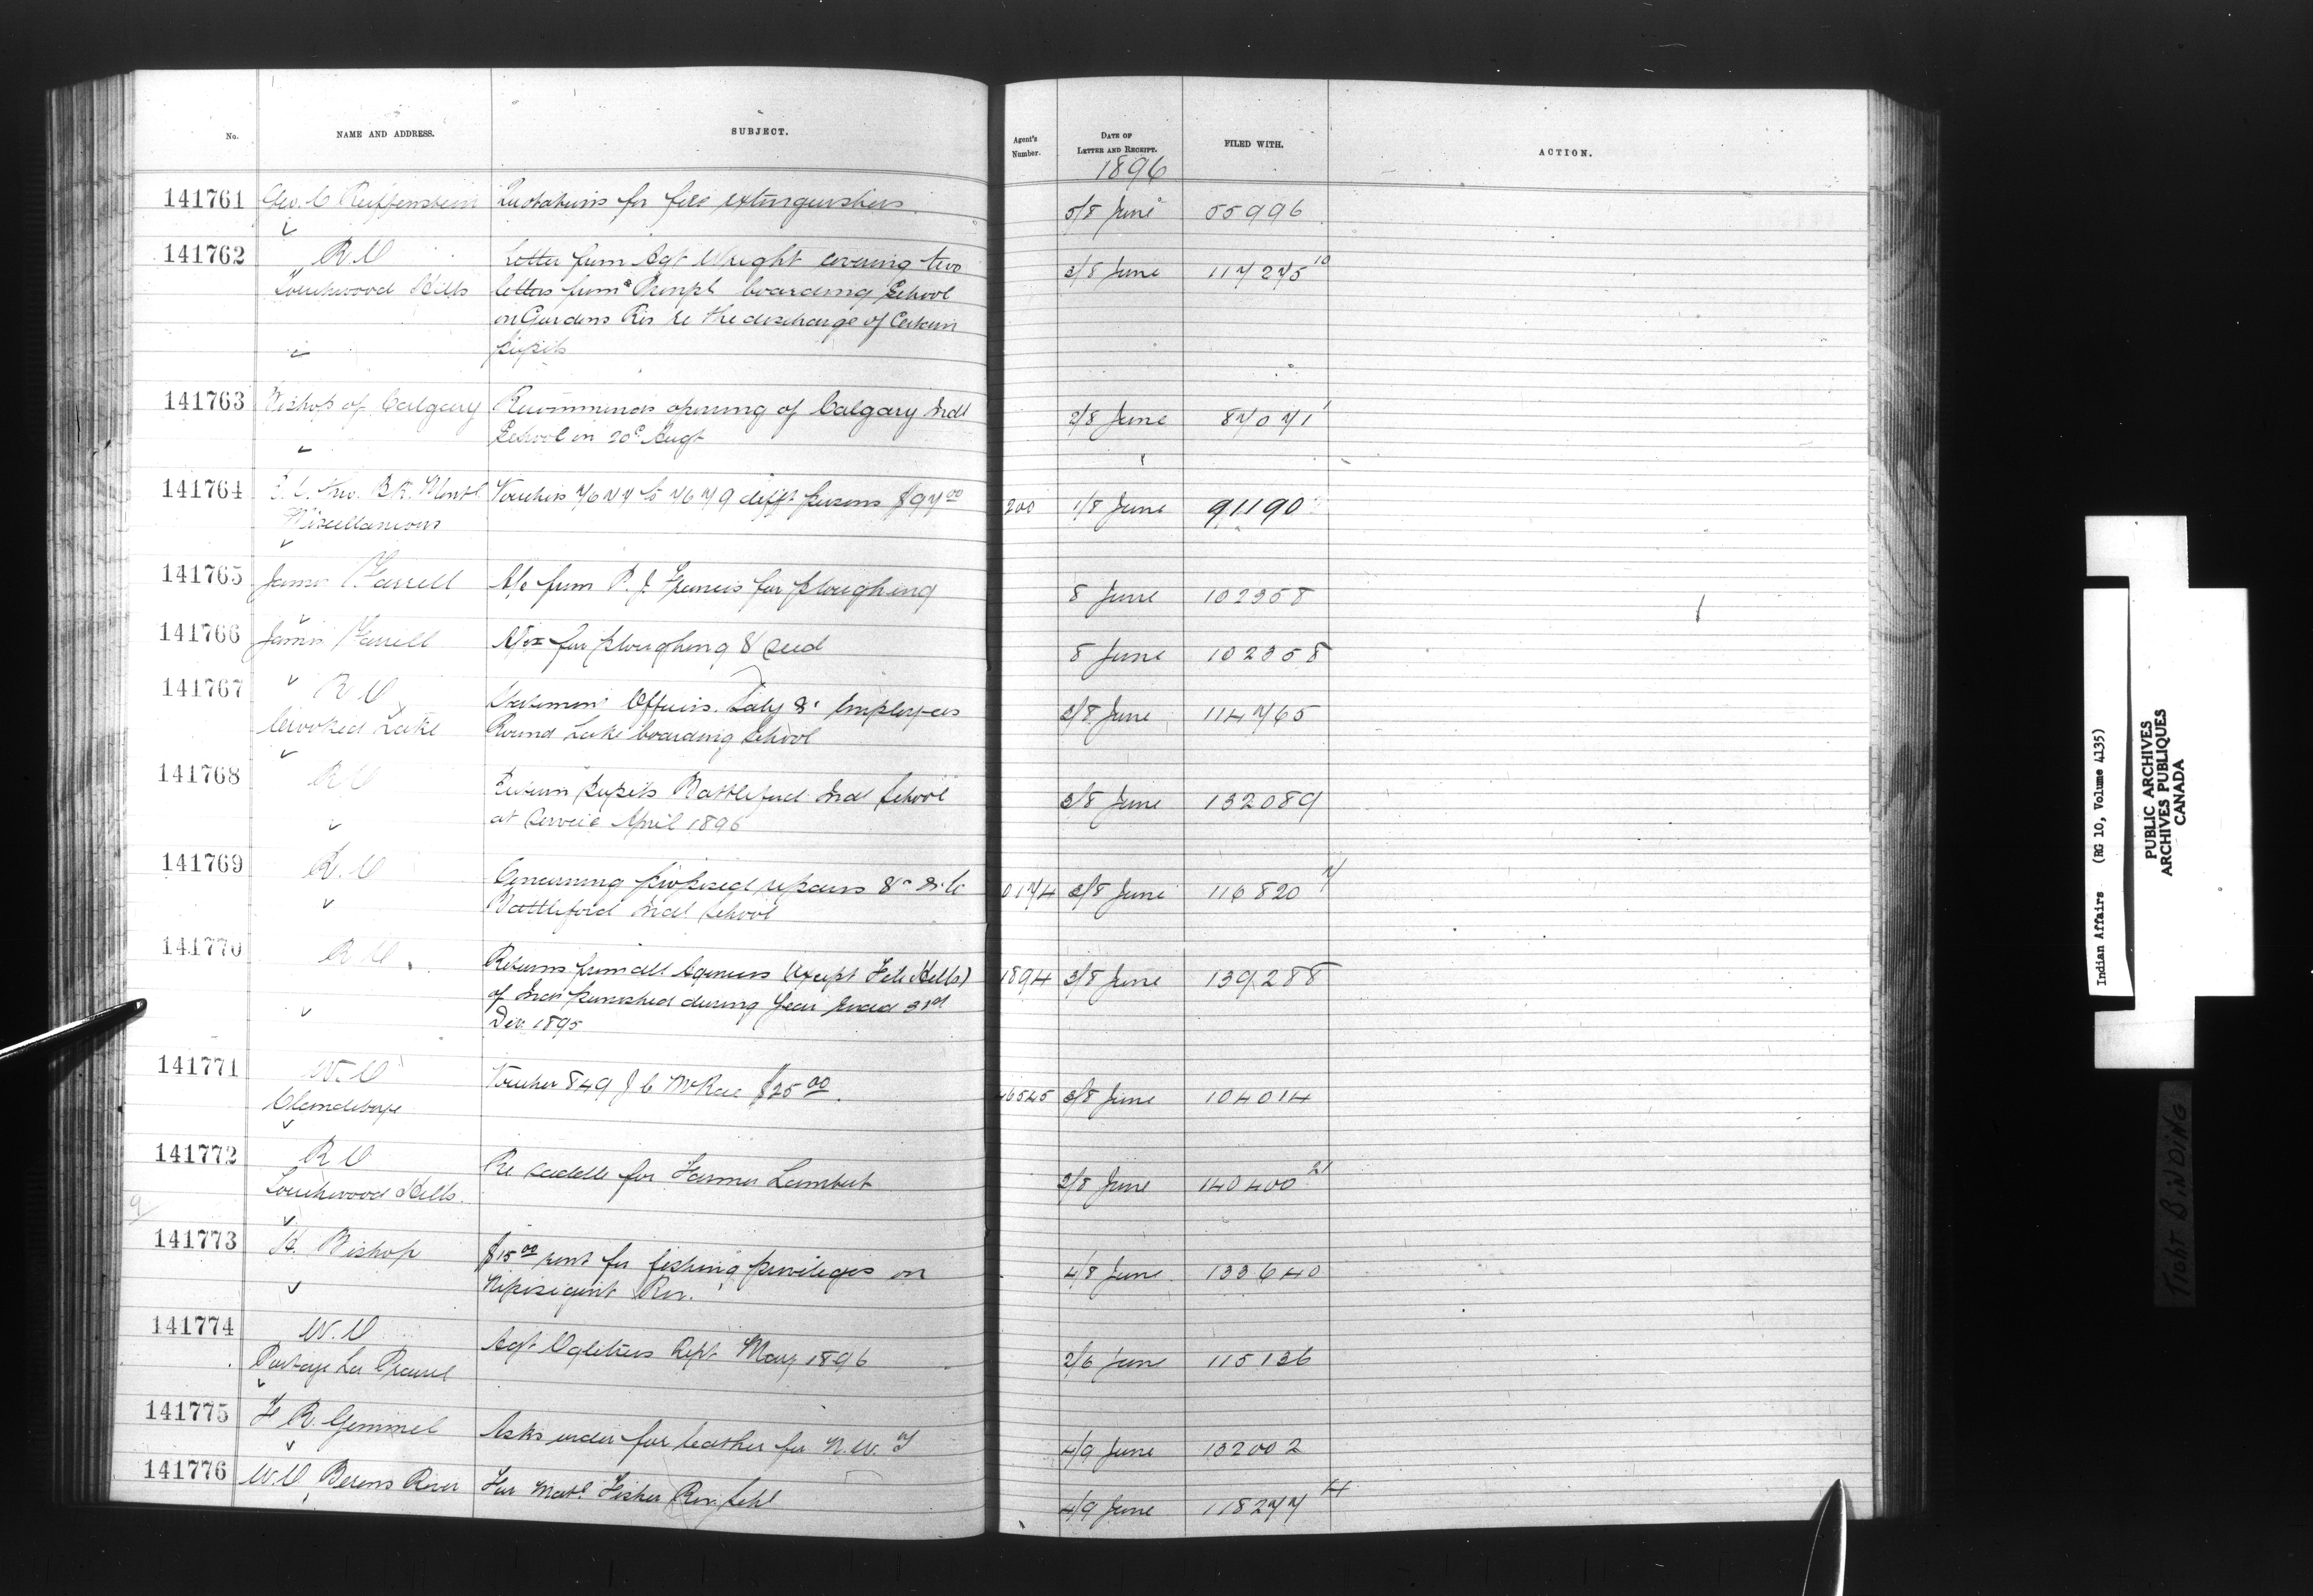 No.
NAME AND ADDRESS.
SUBJECT.
Agent's Number.
DATE OF LETTER AND RECEIPT.
FILED WITH.
ACTION.
1896
141761 Geo. C Reiffenstein Quotations for fire extinguishers 5/8 June 55996
141762 R.C Letter from Agt Wright covering two 3/8 June 117275 10
Touchwood Hills letters from Prinpl boarding School
on Gordons Res re the discharge of Certain
pupils
141763 Bishop of Calgary Recommends opening of Calgary Indl 2/8 June 87071 1
School on 20 Augt
141764 Bk. Montl Vouchers 7677 to 7679 difft persons $97.00 200 1/8 June 91190
Miscellaneous
141765 James Farrell A/c from P. J. Francis for ploughing 8 June 102358
141766 James Farrell A/cs for ploughing & seed 8 June 102358
141767 R C Statement Officers. Saly & Employees 3/8 June 114765
Crooked Lake Round Lake boarding School
141768 R C Return pupils Battleford Indl School 3/8 June 132089
at Service April 1896
141769 R. C Concerning proposed repairs & to 0174 3/8 June 116820 7
Battleford Indl School
141770 R. C Returns from all Agencies (except File Hills) 1894 3/8 June 139288
of Inds punished during year ended 31st
Dec 1895
141771 W. C Voucher 849 J C McRae $25.00 46545 3/8 June 104014
Clandeboye
141772 R C Re saddle for Farmer Lambert 2/8 June 140400 21
Touchwood Hills.
9
141773 H. Bishop $15.00 rent for fishing privileges on 4/8 June 133640
Nipisiquit Riv.
141774 W. C Agt Ogletrees Rept May 1896 2/6 June 115136
Portage La Prairie
141775 R. Gemmel Asks order for leather for N. W. T 4/9 June 132002
141776 W. C Berens River For Matl. Fisher Riv Schl 4/9 June 118277 14
Indian Affairs (RG 10, Volume 4135)
PUBLIC ARCHIVES
ARCHIVES PUBLIQUES
CANADA
TIGHT BINDING